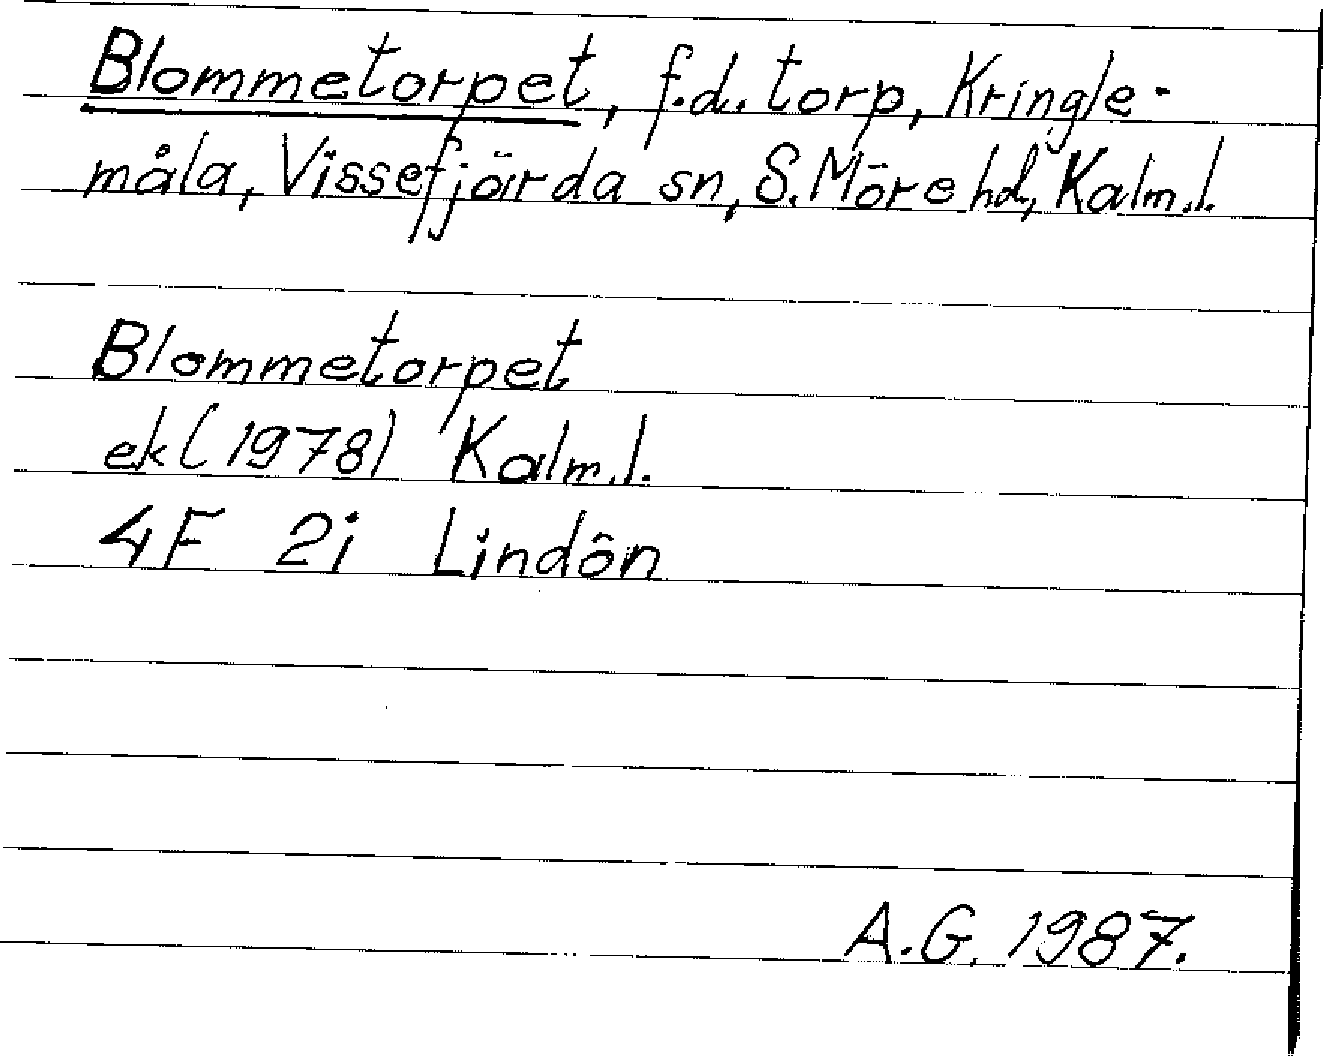 Blommetorpet, f.d. torp, Kringle-
måla, Vissefjärda sn, S. Möre hd, Kalm.l.
Blommetorpet
ek (1978) Kalm.l.
4F 2i Lindön
A.G. 1987.